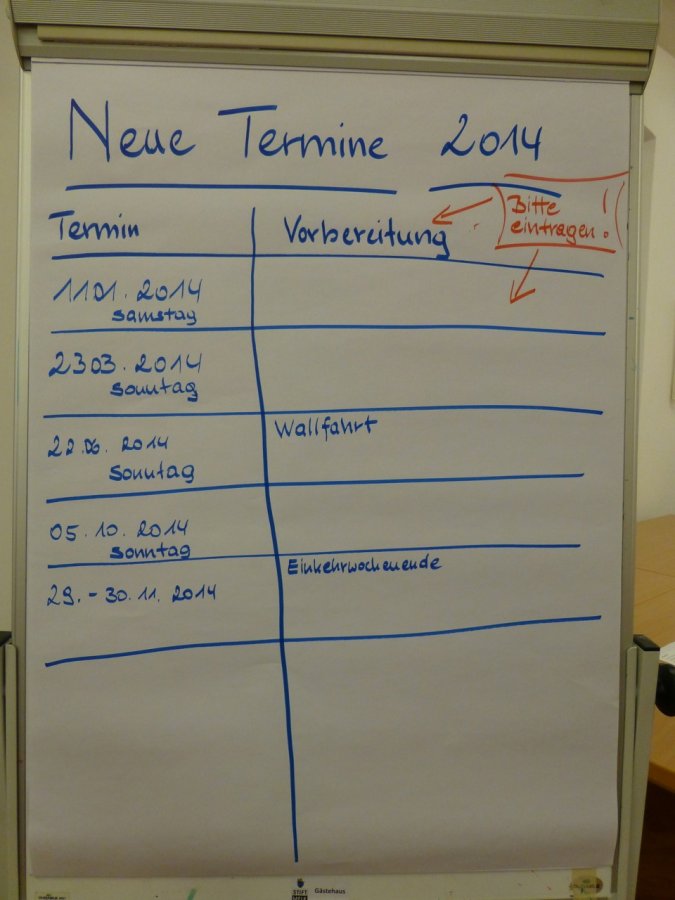 Neue Termine 2014
Termin Vorbereitung
Bitte
eintragen!
11.01.2014
Samstag
23.03.2014
Sonntag
22.06.2014
Sonntag
Wallfahrt
05.10.2014
Sonntag
29.-30.11.2014
Einkehrwochenende
STIFT
MELK
Gästehaus